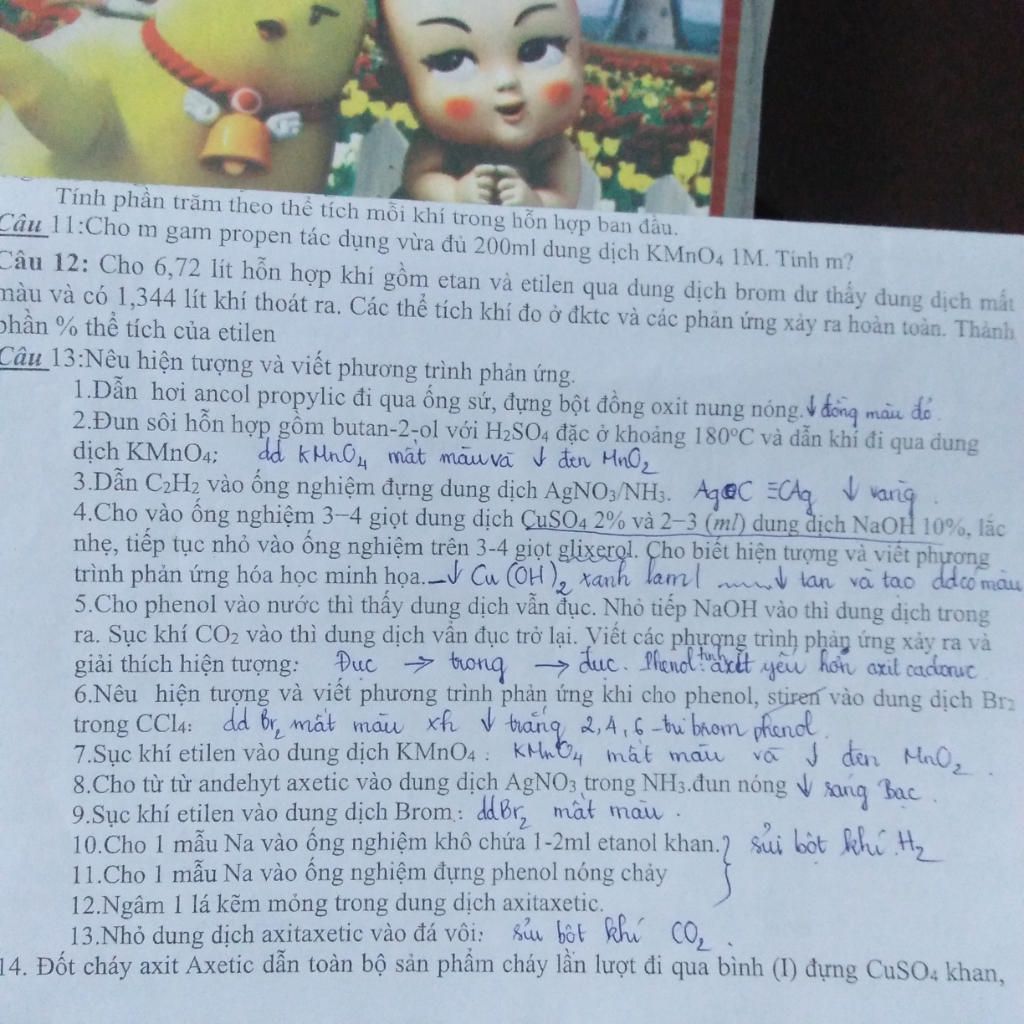 Tính phần trăm theo thể tích mỗi khí trong hỗn hợp ban đầu.
Câu 11:Cho m gam propen tác dụng vừa đủ 200ml dung dịch KMnO₄ 1M. Tính m?
Câu 12: Cho 6,72 lít hỗn hợp khí gồm etan và etilen qua dung dịch brom dư thấy dung dịch mất
màu và có 1,344 lít khí thoát ra. Các thể tích khí đo ở đktc và các phản ứng xảy ra hoàn toàn. Thành
phần % thể tích của etilen
Câu 13:Nêu hiện tượng và viết phương trình phản ứng.
1.Dẫn hơi ancol propylic đi qua ống sứ, đựng bột đồng oxit nung nóng. ↓ đồng màu đỏ.
2.Đun sôi hỗn hợp gồm butan-2-ol với H₂SO₄ đặc ở khoảng 180°C và dẫn khí đi qua dung
dịch KMnO₄; dd KMnO₄ mất màu và ↓ đen MnO₂
3.Dẫn C₂H₂ vào ống nghiệm đựng dung dịch AgNO₃/NH₃. AgC ≡CAg ↓ vàng.
4.Cho vào ống nghiệm 3–4 giọt dung dịch CuSO₄ 2% và 2–3 (ml) dung dịch NaOH 10%, lắc
nhẹ, tiếp tục nhỏ vào ống nghiệm trên 3-4 giọt glixerol. Cho biết hiện tượng và viết phương
trình phản ứng hóa học minh họa. ↓ Cu(OH)₂ xanh lam ↓ tan và tạo dd có màu
5.Cho phenol vào nước thì thấy dung dịch vẫn đục. Nhỏ tiếp NaOH vào thì dung dịch trong
ra. Sục khí CO₂ vào thì dung dịch vẩn đục trở lại. Viết các phương trình phản ứng xảy ra và
giải thích hiện tượng: Đục → trong → đục. Phenol: tính axit yếu hơn axit cacbonic
6.Nêu hiện tượng và viết phương trình phản ứng khi cho phenol, stiren vào dung dịch Br₂
trong CCl₄: dd Br₂ mất màu xh ↓ trắng 2,4,6-tribrom phenol.
7.Sục khí etilen vào dung dịch KMnO₄ : KMnO₄ mất màu và ↓ đen MnO₂.
8.Cho từ từ andehyt axetic vào dung dịch AgNO₃ trong NH₃.đun nóng ↓ sáng Bạc.
9.Sục khí etilen vào dung dịch Brom: dd Br₂ mất màu.
10.Cho 1 mẫu Na vào ống nghiệm khô chứa 1-2ml etanol khan. } sủi bọt khí H₂
11.Cho 1 mẫu Na vào ống nghiệm đựng phenol nóng chảy
12.Ngâm 1 lá kẽm mỏng trong dung dịch axitaxetic.
13.Nhỏ dung dịch axitaxetic vào đá vôi: sủi bọt khí CO₂.
14. Đốt cháy axit Axetic dẫn toàn bộ sản phẩm cháy lần lượt đi qua bình (I) đựng CuSO₄ khan,